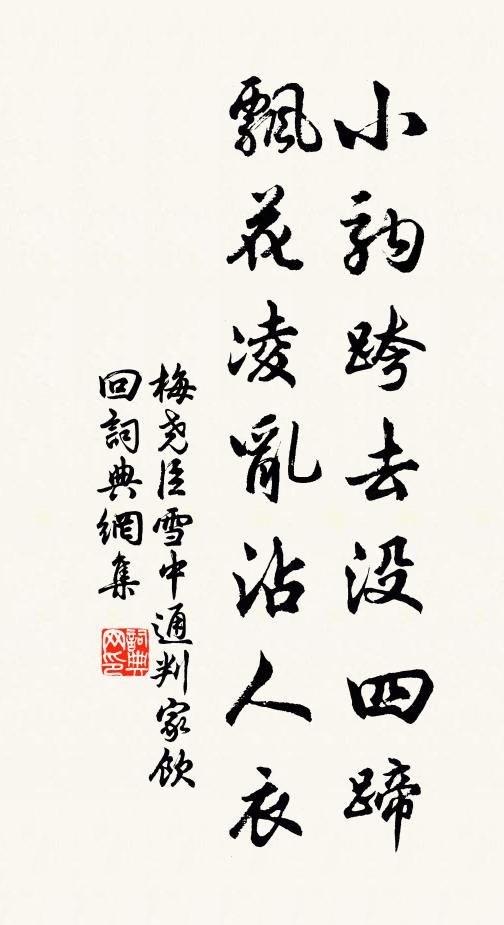 小駒跨去没四蹄
飄花凌亂沾人衣
梅尧臣雪中通判家飲
回詞典網集
詞典
网印